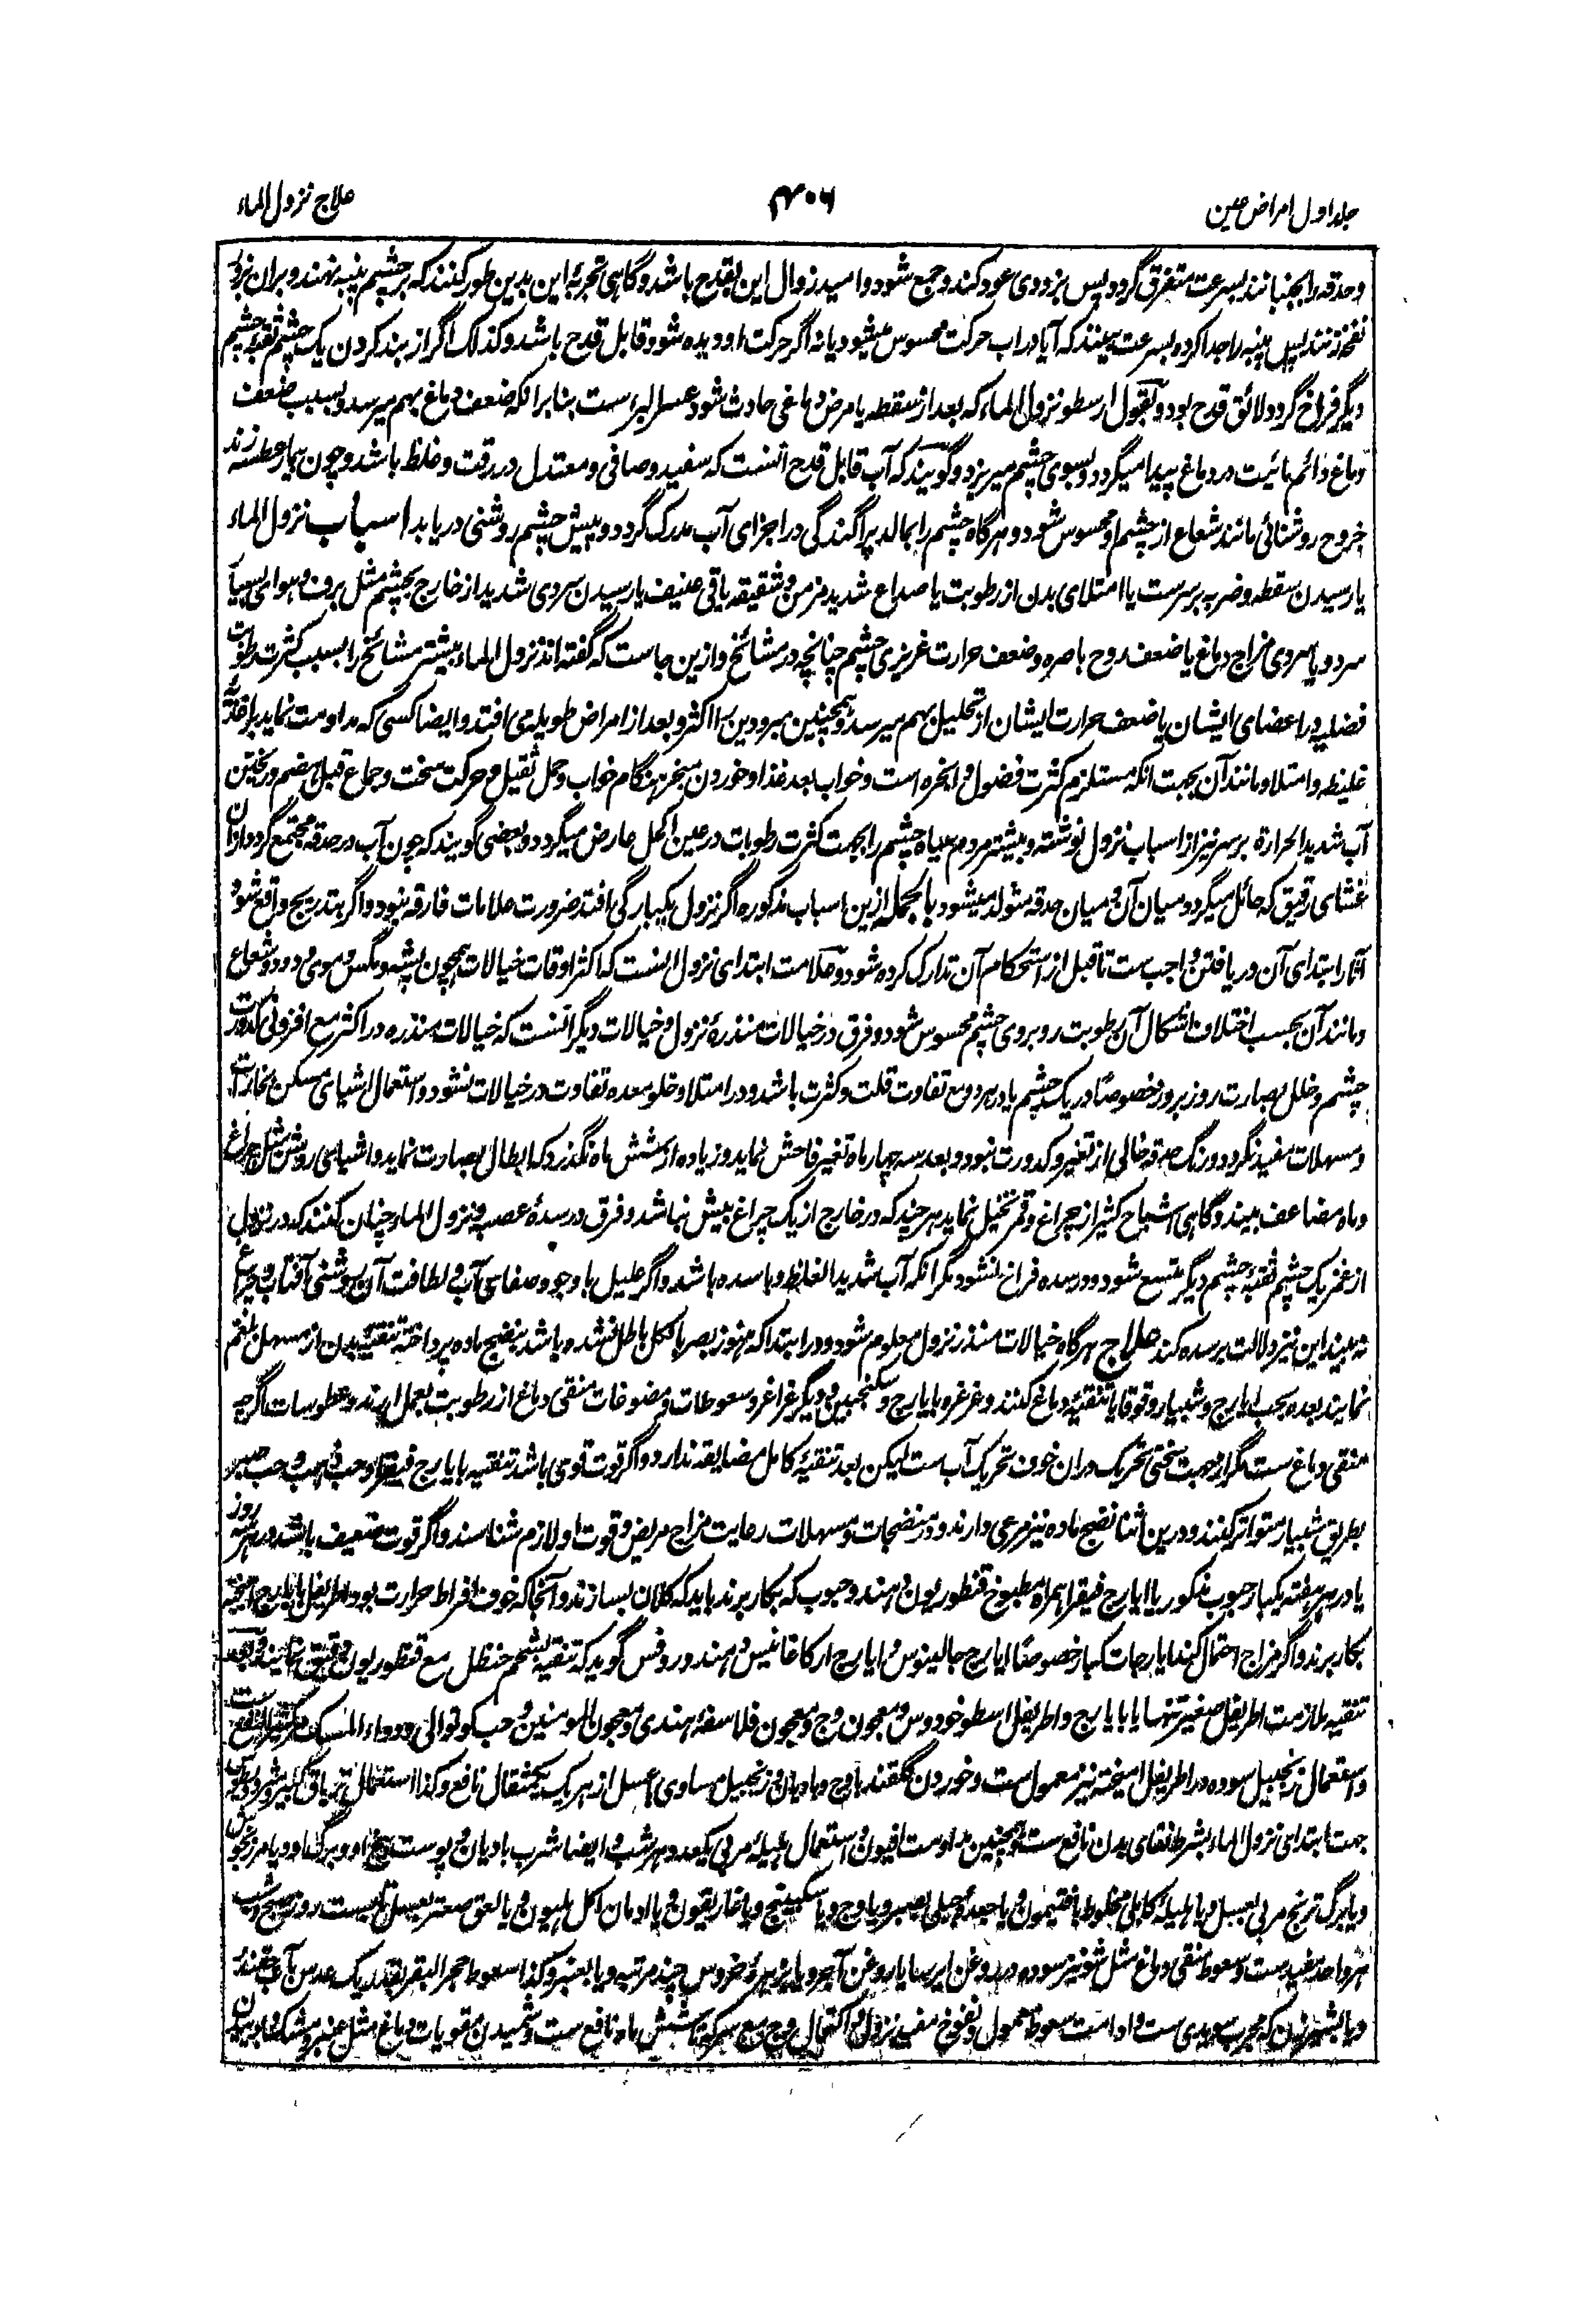 جلد اول امراض عین
۴۰۶
علاج نزول الماء
و حدقه را بجنبانند بسرعت متفرق گردد پس بزودی عود کند و جمع شود و امید زوال این بقدح باشد و گاهی تجربهٔ این بدین طور کنند که بر چشم پنبه نهند و بران بزور
نفحه زنند پس پنبه را جدا کرده بسرعت بینند که آیا در آب حرکت محسوس میشود یا نه اگر حرکت او دیده شود قابل قدح باشد و کذلک اگر از بند کردن یک چشم ثقبهٔ چشم
دیگر فراخ گردد لائق قدح بود و بقول ارسطو نزول الماء که بعد از سقطه یا مرض دماغی حادث شود عسر البرءست بنا بر انکه ضعف دماغ بهم میرسد و بسبب ضعف
دماغ دائم مائیت در دماغ پیدا میگردد و بسوی چشم میریزد و گویند که آب قابل قدح آنست که سفید و صافی و معتدل در رقت و غلظ باشد و چون بیمار عطسه زند
خروج روشنائی مانند شعاع از چشم او محسوس شود و هرگاه چشم را بمالد پراگندگی در اجزای آب مدرک گردد و پیش چشم روشنی دریابد اسباب نزول الماء
یا رسیدن سقطه و ضربه بر سرست یا امتلای بدن از رطوبت یا صداع شدید مزمن و شقیقه یا قی عنیف یا رسیدن سردی شدید از خارج بچشم مثل برف و هوای بسیار
سرد و یا سردی مزاج دماغ یا ضعف روح باصره و ضعف حرارت غریزی چشم چنانچه در مشائخ و ازین جاست که گفته اند نزول الماء بیشتر مشائخ را بسبب کثرت رطوبات
فضلیه در اعضای ایشان یا ضعف حرارت ایشان از تحلیل بهم میرسد و همچنین مبرودین را اکثر و بعد از امراض طویله می افتد و ایضا کسی که مداومت نماید بر اغذیهٔ
غلیظه و امتلا و مانند آن بجهت انکه مستلزم کثرت فضول و ابخره است و خواب بعد غذا و خوردن مبخر هنگام خواب و حمل ثقیل و حرکت سخت و جماع قبل هضم و ریختن
آب شدید الحرارة بر سر نیز از اسباب نزول نوشته و بیشتر مردم سیاه چشم را بجهت کثرت رطوبات در عین اکحل عارض میگردد و بعضی گویند که چون آب در حدقه مجتمع گردد ازان
غشای رقیق که حائل میگردد میان آن و میان حدقه متولد میشود بالجمله ازین اسباب مذکوره اگر نزول یکبارگی افتد ضرورت علامات فارقه نبود و اگر بتدریج واقع شود
آثار ابتدای آن دریافتن واجب ست تا قبل از استحکام آن تدارک کرده شود و علامت ابتدای نزول اینست که اکثر اوقات خیالات همچون پشه و مگس و موی و دود و شعاع
و مانند آن بحسب اختلاف اشکال آن رطوبت روبروی چشم محسوس شود و فرق در خیالات منذرهٔ نزول و خیالات دیگر آنست که خیالات منذره در اکثر مع افزونی کدورت
چشم و خلل بصارت روز بروز خصوصًا در یک چشم یا در هر دو مع تفاوت قلت و کثرت باشد و در امتلا و خلو معده تفاوت در خیالات نشود و استعمال اشیای مسکن بخارات
و مسهلات مفید نگردد و رنگ حدقه خالی از تغیر و کدورت نبود و بعد سه چهار ماه تغیر فاحش نماید و زیاده از شش ماه نگذرد که ابطال بصارت نماید و اشیای روشن مثل چراغ
و ماه مضاعف بیند و گاهی اشباح کثیر از چراغ و قمر تخیل نماید هرچند که در خارج از یک چراغ بیش نباشد و فرق در سدهٔ عصبه و نزول الماء چنان کنند که در نزول
از غمز یک چشم ثقبهٔ چشم دیگر متسع شود و در سده فراخ نشود مگر انکه آب شدید الغلظ و با سده باشد و اگر علیل با وجود صفای آب و لطافت آن روشنی آفتاب و چراغ
نه بیند این نیز دلالت بر سده کند علاج هرگاه خیالات منذر نزول معلوم شود و در ابتدا که هنوز بصر بالکل باطل نشده باشد بنضج ماده پرداخته تنقیهٔ بدن از مسهل بلغم
نمایند بعده بحب ایارج و شبیار و قوقایا تنقیهٔ دماغ کنند و غرغره بایارج و سکنجبین و دیگر غراغر و سعوطات و مضوغات منقی دماغ از رطوبت بعمل آرند و عطوسات اگرچه
منقی دماغ ست مگر از جهت سختی تحریک دران خوف تحریک آب ست لیکن بعد تنقیهٔ کامل مضایقه ندارد و اگر قوت قوی باشد تنقیه بایارج فیقرا و حب ذهب و حب صبر
بطریق شبیار متواتر کنند و درین اثنا نضج ماده نیز مرعی دارند و در منضجات و مسهلات رعایت مزاج مریض و قوت او لازم شناسند و اگر قوت ضعیف باشد در هر سه روز
یا در هر هفته یکبار حبوب مذکور یا ایارج فیقرا همراه مطبوخ قنطوریون دهند و حبوب که بکار برند باید که کلان بسازند و آنجا که خوف افراط حرارت بود اطریفل بایارج آمیخته
بکار برند و اگر مزاج احتمال کند ایارجات کبار خصوصًا ایارج جالینوس و ایارج ارکاغانیس دهند و روفس گوید که تنقیه بشحم حنظل مع قنطوریون دقیق نمایند و بعد
تنقیه ملازمت اطریفل صغیر تنها یا بایارج و اطریفل اسطوخودوس و معجون وج و معجون فلاسفه هندی و معجون المومنین و حب کوتوالی و دواء المسک
و استعمال زنجبیل سوده در اطریفل آمیخته نیز معمول ست و خوردن گلقند با وج و بادیان و زنجبیل مساوی بعسل از هر یک یکمثقال نافع و کذا استعمال تریاق کبیر
جهت ابتدای نزول الماء بشرط نقای بدن نافع ست و همچنین مداومت افیون و استعمال هلیله مربی یکعدد هر شب و ایضا شرب بادیان و پوست بیخ او و برگ او و یا مرزنجوش
و یا برگ ترنج مربی بعسل و یا هلیله کابلی مخلوط بافتیمون و یا جعدهٔ جبلی بصبر و یا وج و یا سکبینج و یا غاریقون و یا ادمان اکل هلیون و یا لعق سعتر بعسل تا بیست روز صبح و شب
هر واحد مفید ست و سعوط منقی دماغ مثل شونیز سوده در روغن ایرسا یا روغن آجر و یا زهرهٔ خروس چند مرتبه و یا بعنبر و کذا سعوط حجر البقر بقدر یک عدس بآب چقندر
که مجرب سویدی ست و ادامت سعوط معمول و نفوخ مفید نزول و اکتحال وج مع سرکه تا شش ماه نافع ست و شمیدن مقویات دماغ مثل عنبر و مشک